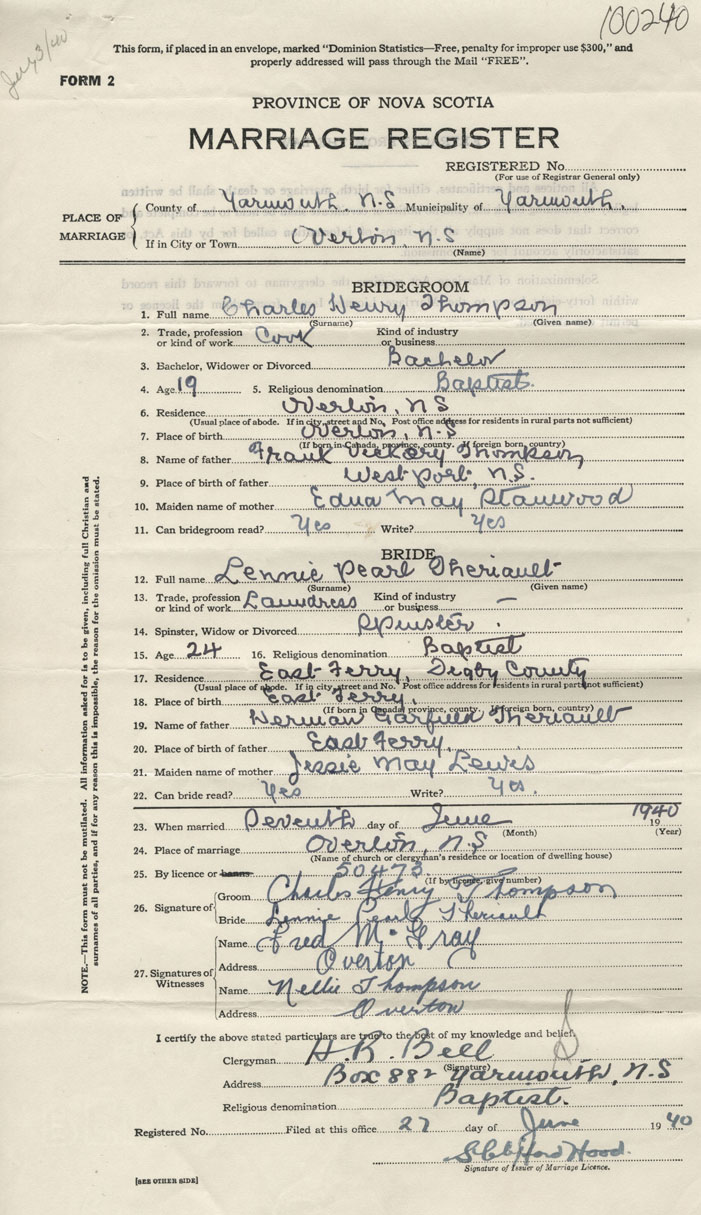 100240
This form, if placed in an envelope, marked "Dominion Statistics—Free, penalty for improper use $300," and
properly addressed will pass through the Mail "FREE".
FORM 2
PROVINCE OF NOVA SCOTIA
MARRIAGE REGISTER
REGISTERED No.
(For use of Registrar General only)
PLACE OF MARRIAGE
County of Yarmouth, N.S Municipality of Yarmouth.
If in City or Town Overton, N.S
(Name)
BRIDEGROOM
1. Full name Charles Henry Thompson
(Surname) (Given name)
2. Trade, profession or kind of work Cook Kind of industry or business
3. Bachelor, Widower or Divorced Bachelor
4. Age 19 5. Religious denomination Baptist.
6. Residence Overton, N S
(Usual place of abode. If in city, street and No. Post office address for residents in rural parts not sufficient)
7. Place of birth Overton, N.S
(If born in Canada, province, county. If foreign born, country)
8. Name of father Frank Vickery Thompson
9. Place of birth of father Westport, N.S.
10. Maiden name of mother Edna May Stanwood
11. Can bridegroom read? Yes Write? Yes
BRIDE
12. Full name Lennie Pearl Theriault
(Surname) (Given name)
13. Trade, profession or kind of work Laundress Kind of industry or business —
14. Spinster, Widow or Divorced Spinster.
15. Age 24 16. Religious denomination Baptist
17. Residence East Ferry, Digby County
(Usual place of abode. If in city, street and No. Post office address for residents in rural parts not sufficient)
18. Place of birth East Ferry.
(If born in Canada, province, county. If foreign born, country)
19. Name of father Herman Garfield Theriault
20. Place of birth of father East Ferry.
21. Maiden name of mother Jessie May Lewis
22. Can bride read? Yes Write? Yes.
23. When married Seventh day of June 1940
(Month) 19 (Year)
24. Place of marriage Overton, N.S
(Name of church or clergyman's residence or location of dwelling house)
25. By licence or banns. 50473
(If by licence, give number)
26. Signature of
Groom Charles Henry Thompson
Bride Lennie Pearl Theriault
27. Signatures of Witnesses
Name Fred McGray
Address Overton
Name Nellie Thompson
Address Overton
I certify the above stated particulars are true to the best of my knowledge and belief.
Clergyman H.R. Bell
(Signature)
Address Box 882 Yarmouth, N.S
Religious denomination Baptist.
Registered No. Filed at this office 27 day of June 1940
S Clifford Hood.
Signature of Issuer of Marriage Licence.
[SEE OTHER SIDE]
NOTE.—This form must not be mutilated. All information asked for is to be given, including full Christian and
surnames of all parties, and if for any reason this is impossible, the reason for the omission must be stated.